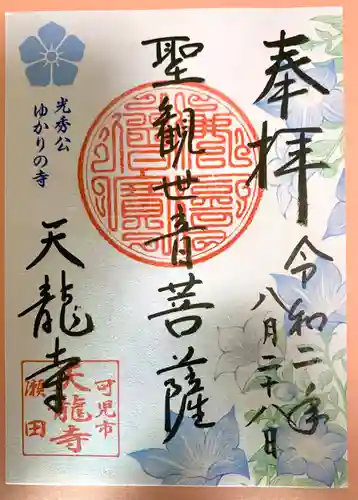 奉拝
令和二年
八月二十八日
聖観世音菩薩
光秀公
ゆかりの寺
天龍寺
可児市
天龍寺
瀬田